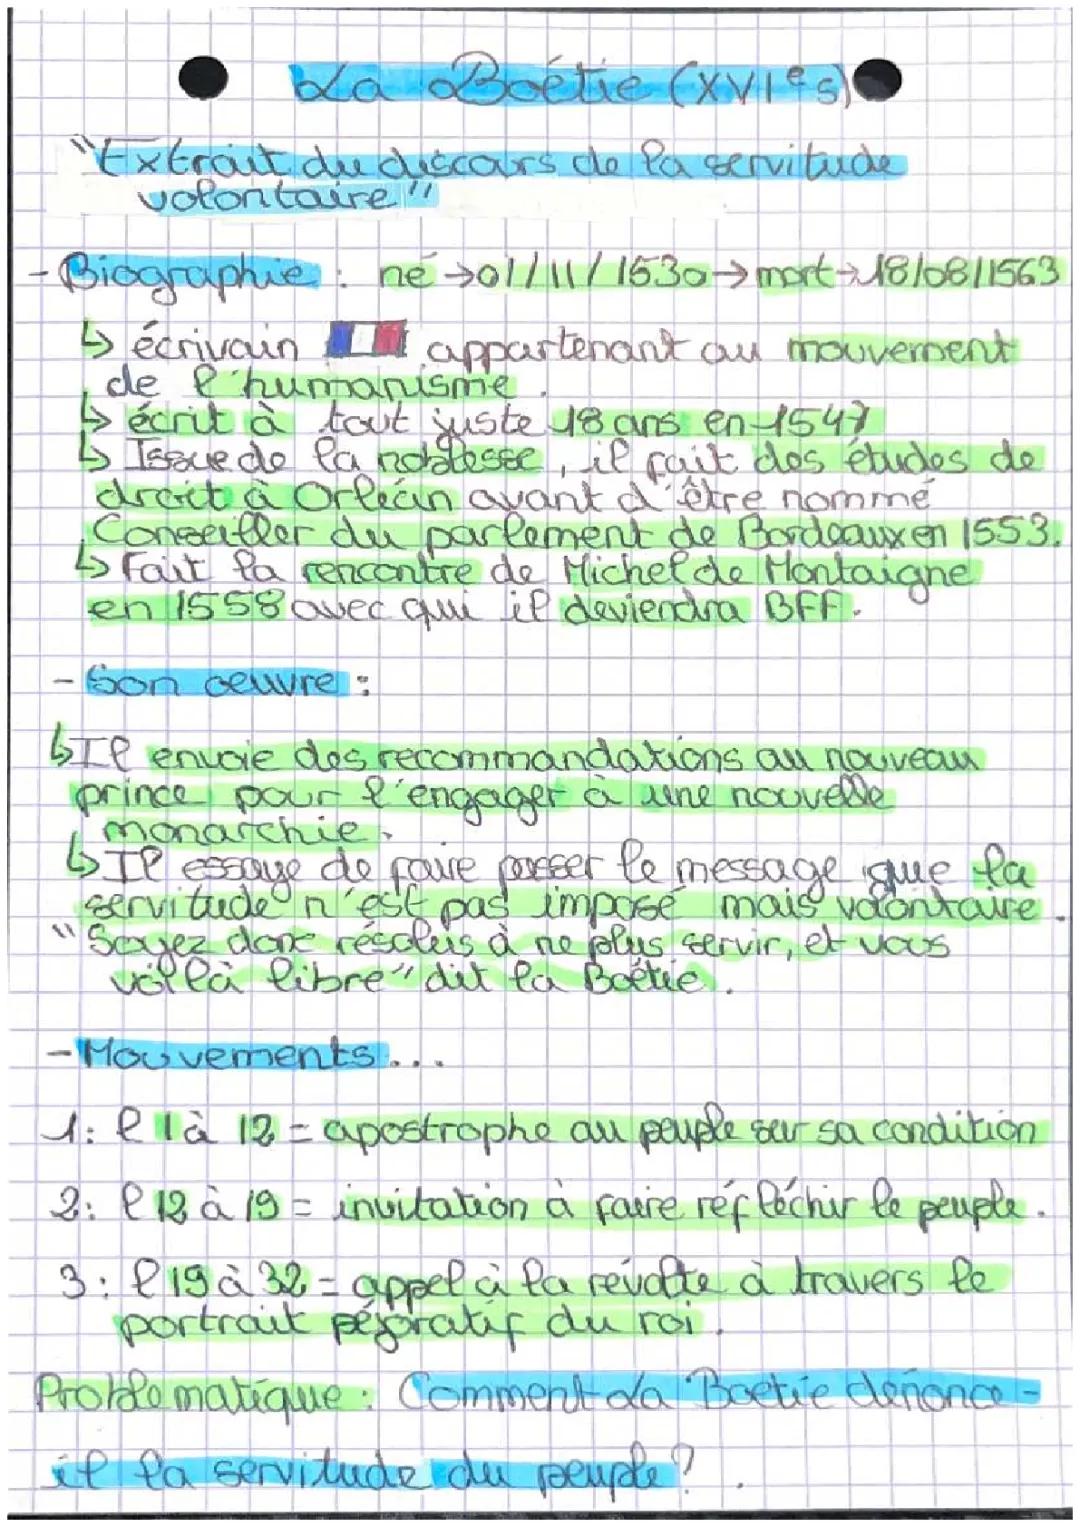 La Boétie (XVIe s)
"Extrait du discours de la servitude
volontaire"
- Biographie : né → 01/11/1530 → mort → 18/08/1563
↳ écrivain appartenant au mouvement
de l'humanisme.
↳ écrit à tout juste 18 ans en 1547
↳ Issue de la noblesse, il fait des études de
droit à Orléan avant d'être nommé
Conseiller du parlement de Bordeaux en 1553.
↳ Fait la rencontre de Michel de Montaigne
en 1558 avec qui il deviendra BFF.
- Son oeuvre :
↳ Il envoie des recommandations au nouveau
prince pour l'engager à une nouvelle
monarchie.
↳ Il essaye de faire passer le message que la
servitude n'est pas imposé mais volontaire.
"Soyez donc résolus à ne plus servir, et vous
voilà libre" dit la Boétie.
- Mouvements...
1: l 1 à 12 = apostrophe au peuple sur sa condition
2: l 12 à 19 = invitation à faire réfléchir le peuple.
3: l 19 à 32 = appel à la révolte à travers le
portrait péjoratif du roi.
Problématique : Comment La Boetie dénonce-
il la servitude du peuple ?